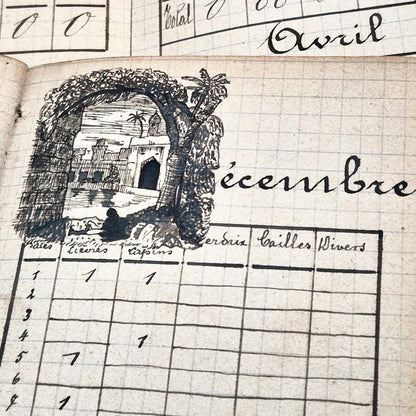 0 0
Total 0 00 0
Avril
Décembre
Dates Lièvres Lapins Perdrix Cailles Divers
1 1 1
2
3
4 1
5 1
6
7 1